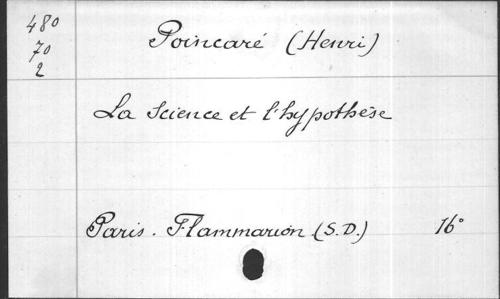 480
70
2
Poincaré (Henri)
La Science et l'hypothèse
Paris. Flammarion (S.D.) 16°